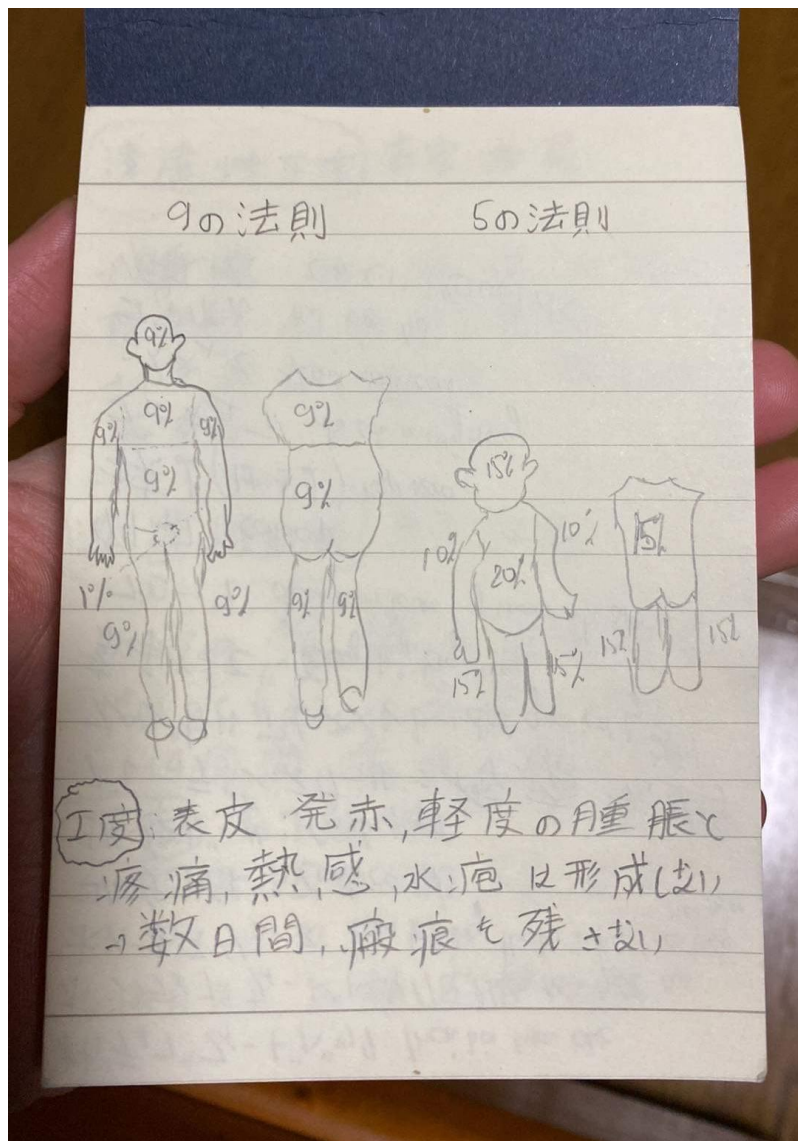 9の法則 5の法則
9%
9% 9% 9% 9%
9% 9%
15% 15%
10% 10%
20%
1% 9% 9% 9% 9%
15% 15% 15% 15%
I度:表皮 発赤,軽度の腫脹と
疼痛,熱感,水疱は形成しない
→数日間,瘢痕も残さない